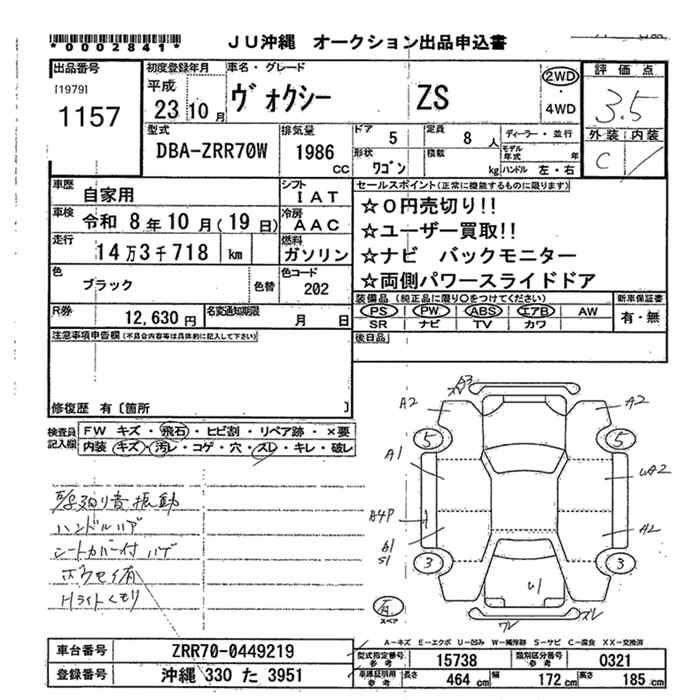 *0002841*
JU沖縄 オークション出品申込書
出品番号 初度登録年月 車名・グレード 評価点
[1979] 平成 ヴォクシー ZS 2WD 3.5
1157 23 10月 4WD
外装 内装
C
型式 排気量 ドア 5 定員 8人 ディーラー・並行
DBA-ZRR70W 1986cc 形状 ワゴン 積載 kg モデル年式 年
ハンドル 左・右
車歴 自家用 シフト IAT セールスポイント(正常に機能するものに限ります)
車検 令和 8年10月(19日) 冷房 AAC ☆0円売切り!!
☆ユーザー買取!!
走行 14万3千718 km 燃料 ガソリン ☆ナビ バックモニター
色 ブラック 色替 色コード 202 ☆両側パワースライドドア
装備品(純正品に限り○をつけてください) 新車保証書
R券 12,630円 名変通知期限 月 日 PS PW ABS エアB AW 有・無
SR ナビ TV カワ
注意事項申告欄(不具合内容等は具体的に記入して下さい) 後日品
修復歴 有〔箇所 〕
検査員記入欄 FW キズ・飛石・ヒビ割・リペア跡・×要
内装 キズ・汚レ・コゲ・穴・スレ・キレ・破レ
A3
A2 A2
5 5
A1 UA2
A4P A2
B1
S1
3 3
U1
ワレ ズレ
スペア
音振動
ハンドルハゲ
シートカバー付 ハゲ
Hライトくもり
A-キズ E-エクボ U-凹み W-補修跡 S-サビ C-腐食 XX-交換済
車台番号 ZRR70-0449219 型式指定番号 参考 15738 類別区分番号 参考 0321
登録番号 沖縄 330 た 3951 車庫証明用 参考 長さ 464cm 幅 172cm 高さ 185cm